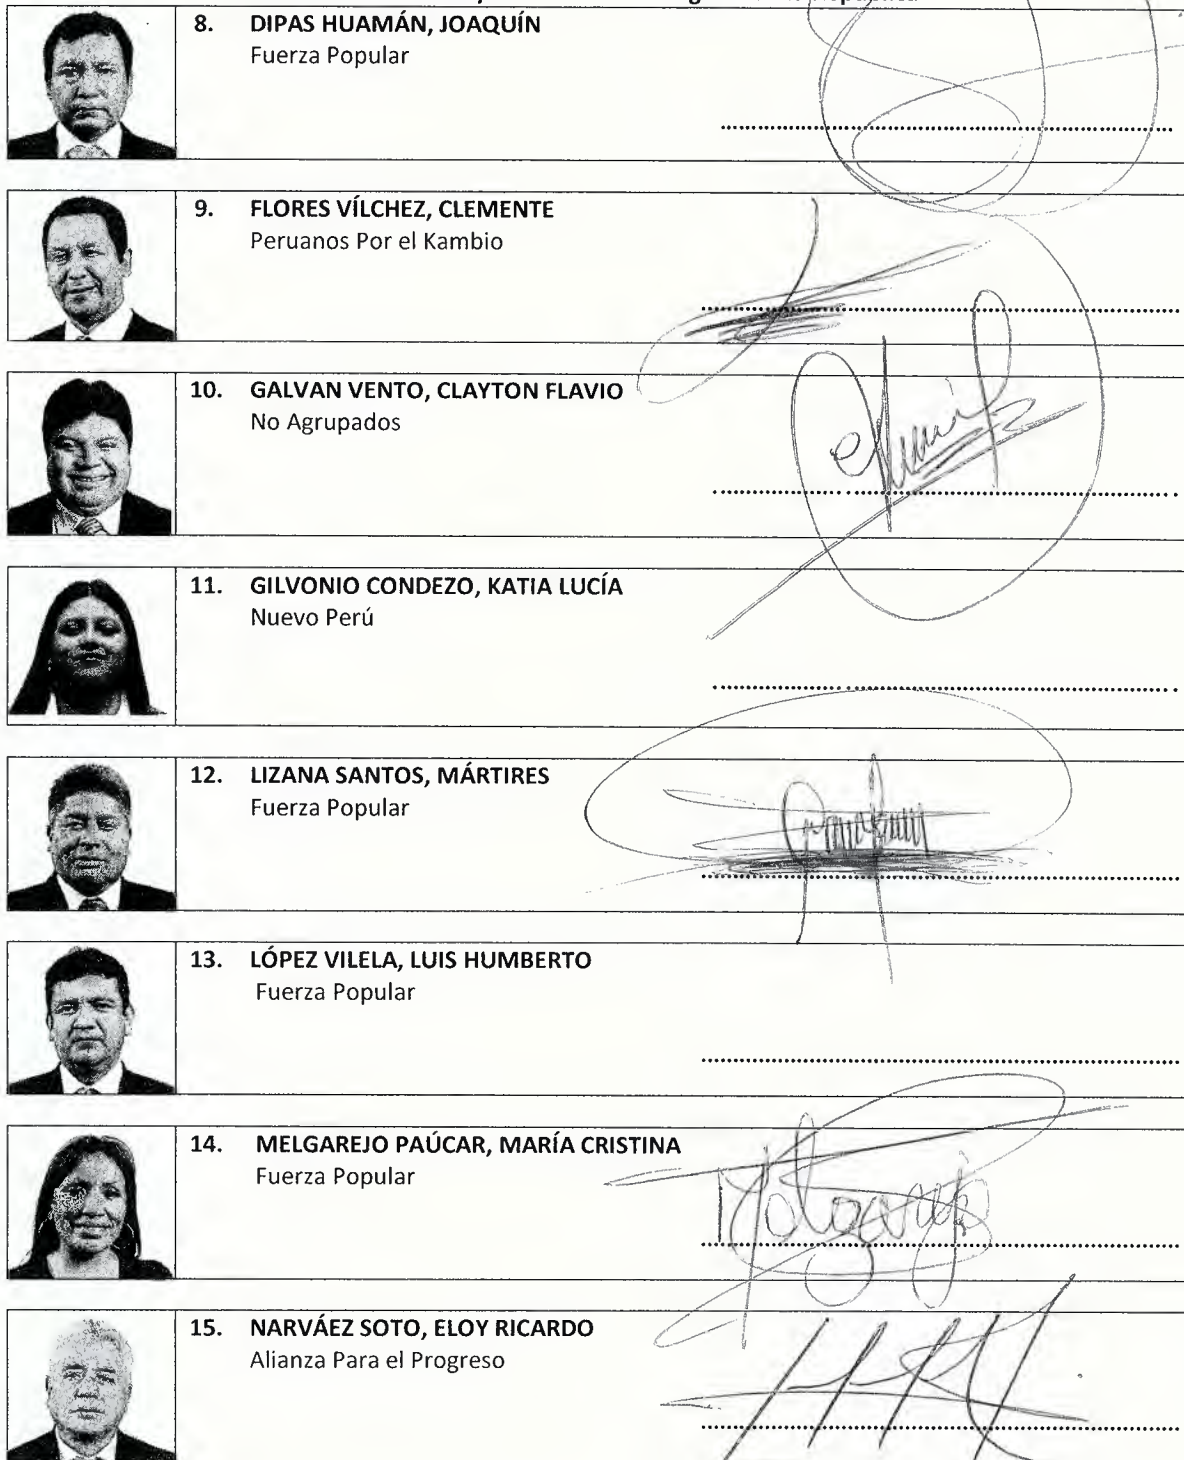 8. DIPAS HUAMÁN, JOAQUÍN
Fuerza Popular
9. FLORES VÍLCHEZ, CLEMENTE
Peruanos Por el Kambio
10. GALVAN VENTO, CLAYTON FLAVIO
No Agrupados
11. GILVONIO CONDEZO, KATIA LUCÍA
Nuevo Perú
12. LIZANA SANTOS, MÁRTIRES
Fuerza Popular
13. LÓPEZ VILELA, LUIS HUMBERTO
Fuerza Popular
14. MELGAREJO PAÚCAR, MARÍA CRISTINA
Fuerza Popular
15. NARVÁEZ SOTO, ELOY RICARDO
Alianza Para el Progreso